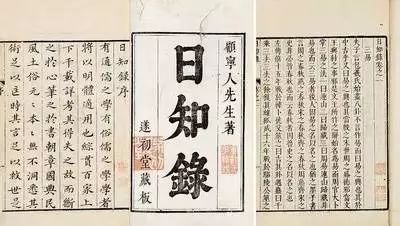 日知錄序
有通儒之學有俗儒之學學者
將以明體適用也綜貫百家上
下千載詳考其得失之故而斷
之於心筆之於書朝章國典民
風土俗元〻本〻無不洞悉其
術足以匡時其言足以救世是
顧寧人先生著
日知錄
遂初堂藏板
日知錄卷之一
三易
夫子言包羲氏始畫八卦不言作易而曰易之興也其於
中古乎又曰易之興也其當殷之末世周之盛德邪當文
王與紂之事邪是文王所作之辭始名爲易而周官大卜
掌三易之灋一曰連山二曰歸藏三曰周易連山歸藏非
易也而云三易者後人因易之名以名之也猶之墨子書
言周之春秋燕之春秋宋之春秋齊之春秋周燕齊宋之
史非必皆春秋也而云春秋者因魯史之名以名之也
左傳僖十五年戰于韓卜徒父筮之曰吉其卦遇蠱曰千
乘三去三去之餘獲其雄狐成十六年戰于鄢陵公筮之